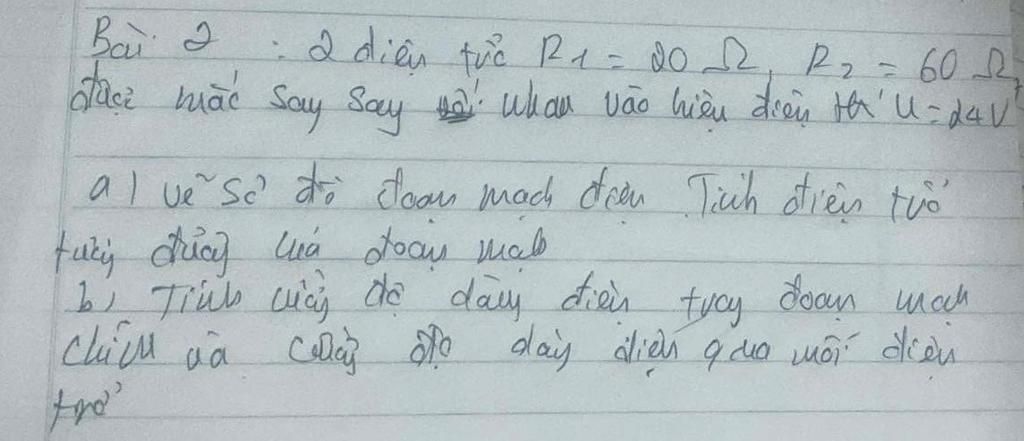 Bài 2 : 2 điện trở R1 = 20 Ω, R2 = 60 Ω,
được mắc song song với nhau vào hiệu điện thế U = 24V
a) vẽ sơ đồ đoạn mạch điện. Tính điện trở
tương đương của đoạn mạch
b, Tính cường độ dòng điện trong đoạn mạch
chính và cường độ dòng điện qua mỗi điện
trở